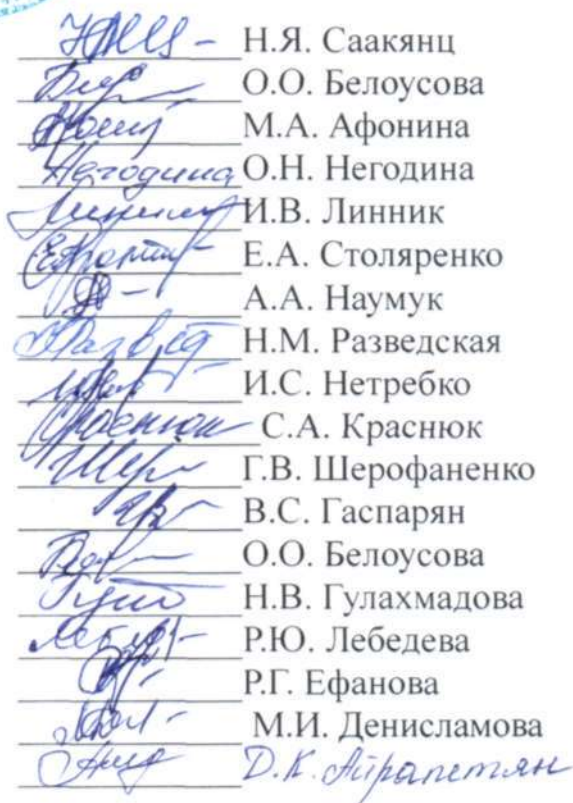 Н.Я. Саакянц
О.О. Белоусова
М.А. Афонина
Негодина О.Н. Негодина
И.В. Линник
Е.А. Столяренко
А.А. Наумук
Н.М. Разведская
И.С. Нетребко
С.А. Краснюк
Г.В. Шерофаненко
В.С. Гаспарян
О.О. Белоусова
Н.В. Гулахмадова
Р.Ю. Лебедева
Р.Г. Ефанова
М.И. Денисламова
Д.К. Айрапетян